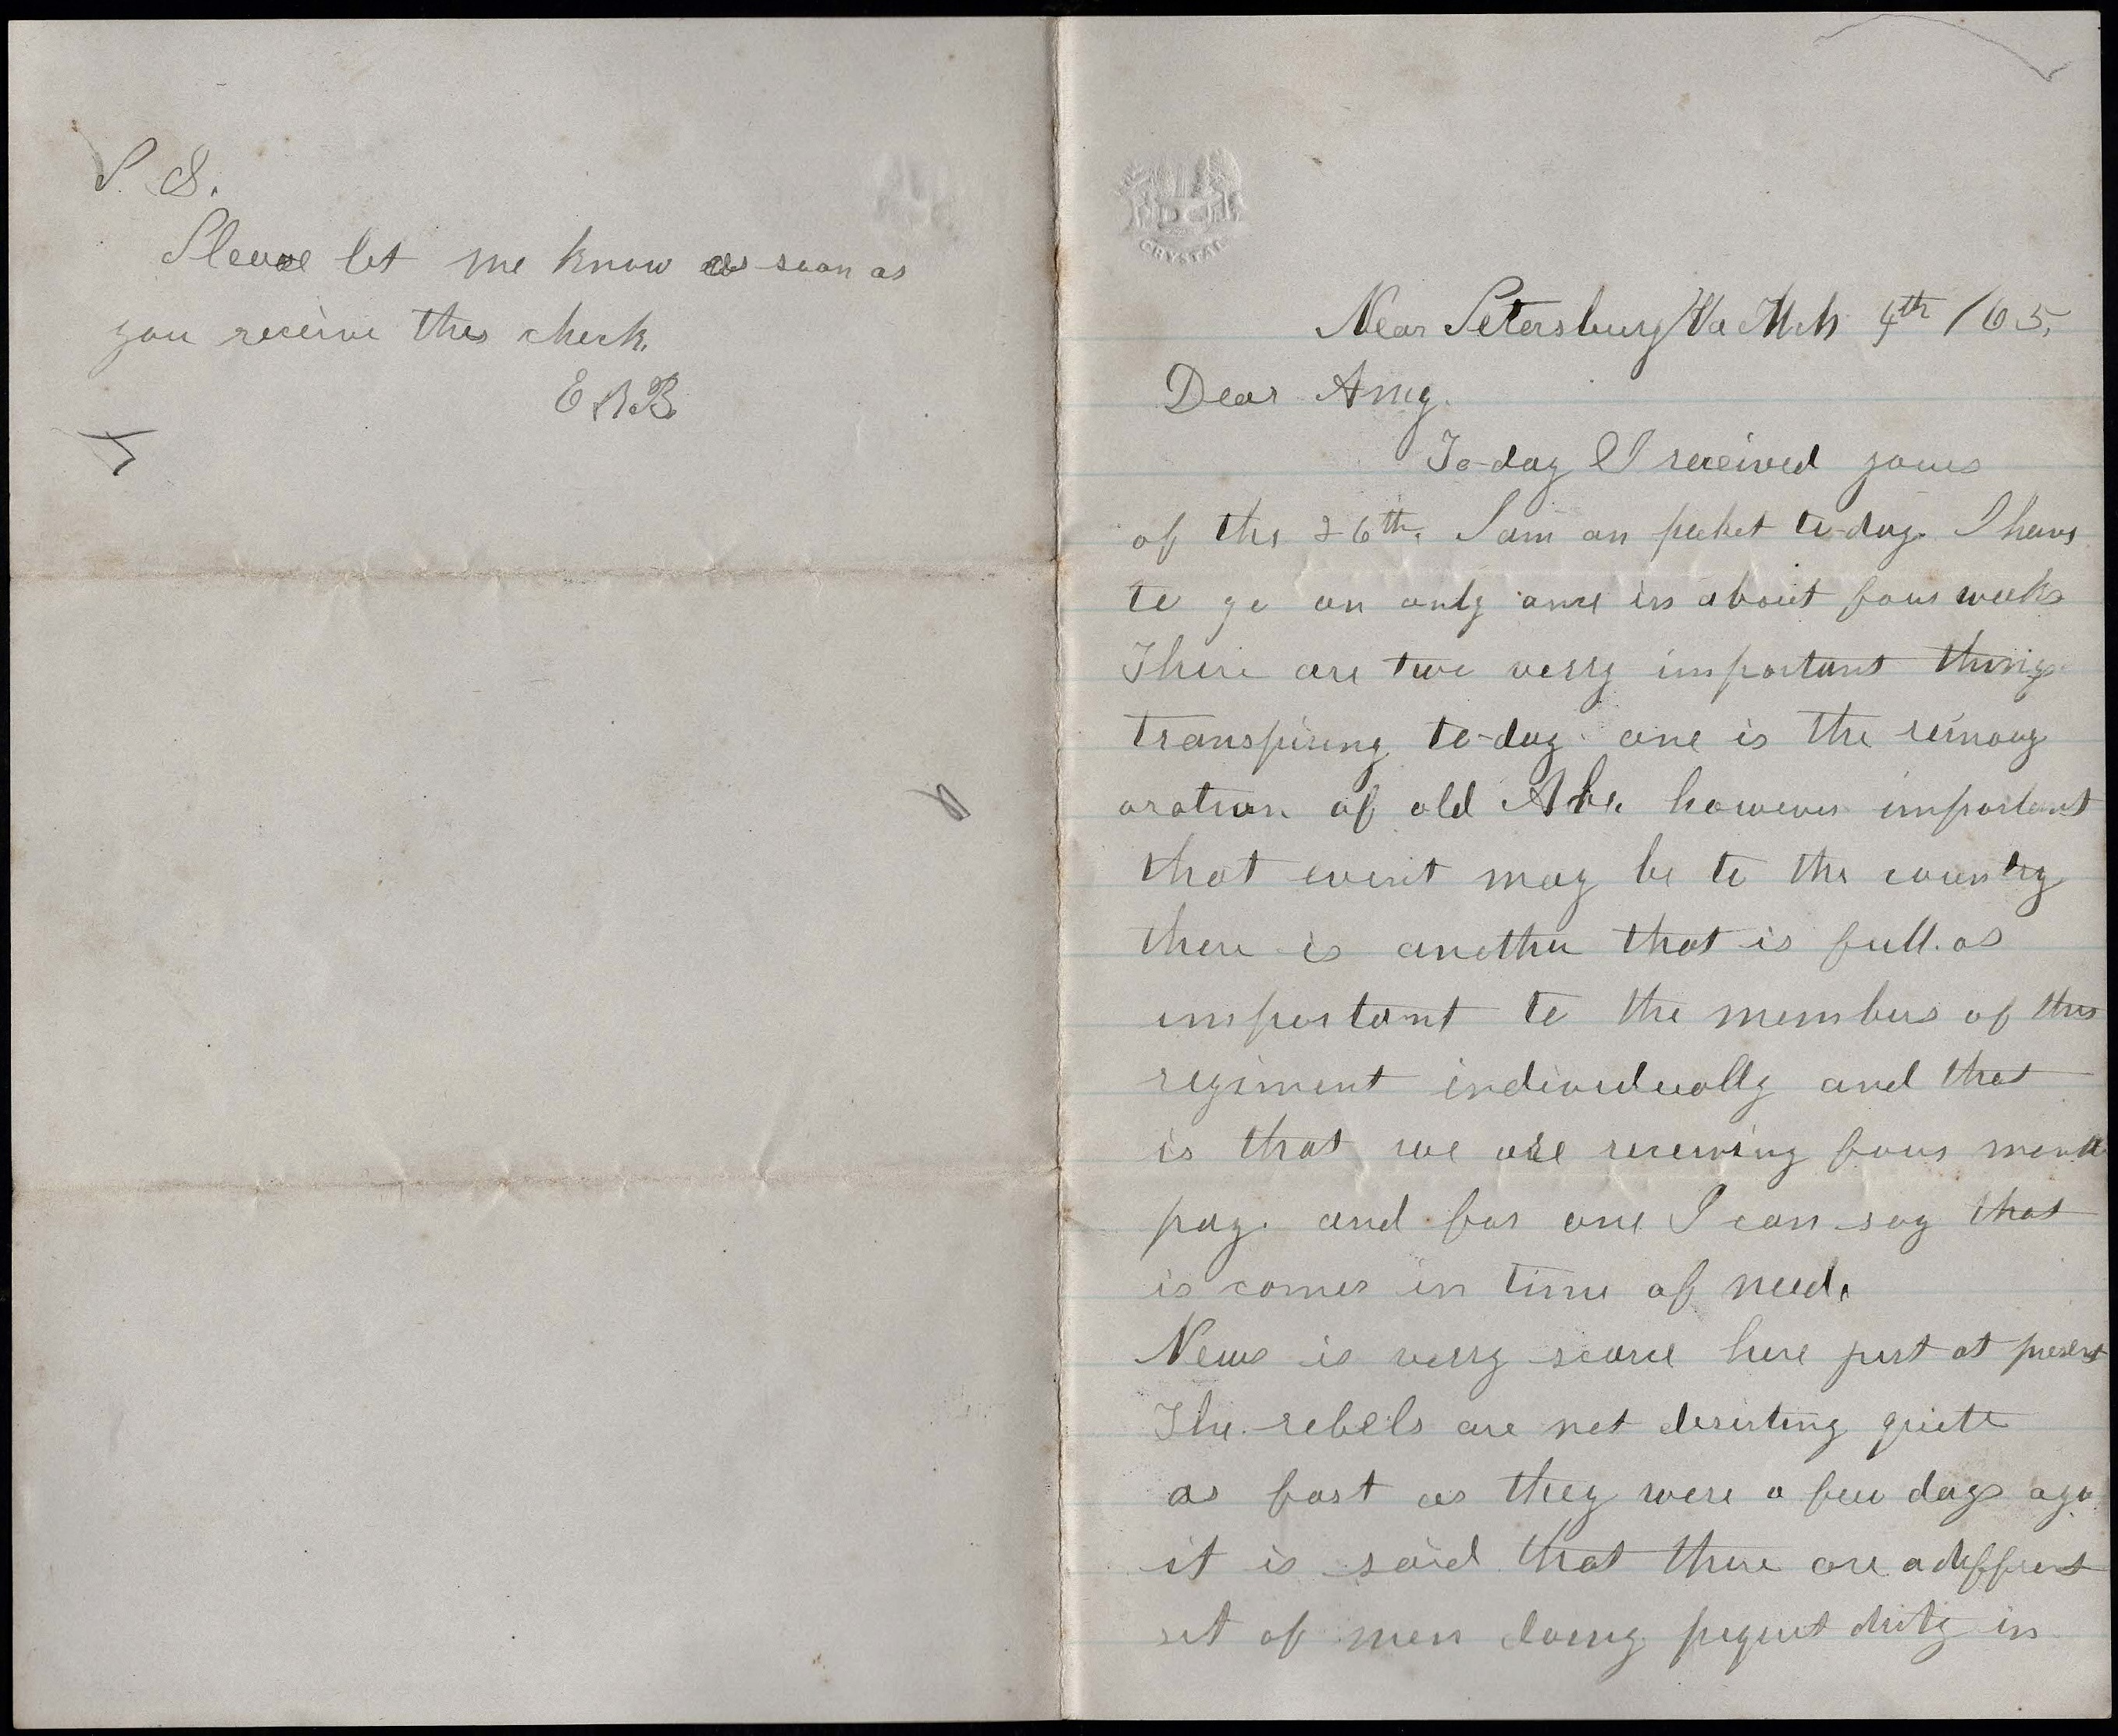 P. S.
Please let me know as soon as
you receive this check.
E R B.
CRYSTAL
Near Petersburg Va Mch 4th /65.
Dear Amy.
To-day I received yours
of the 26th. I am on picket to-day. I have
to go on only once in about four weeks
There are two verry important things
transpiring to-day one is the reinaug
oration of old Abe. however important
that event may be to the country
there is another that is full as
important to the members of this
regiment individually and that
is that we are receiving four
pay. and for one I can say that
is comes in time of need.
News is verry scarce here just at present
The rebels are not deserting quite
as fast as they were a few days ago
it is said that there are a diffrent
set of men doing piquet duty in